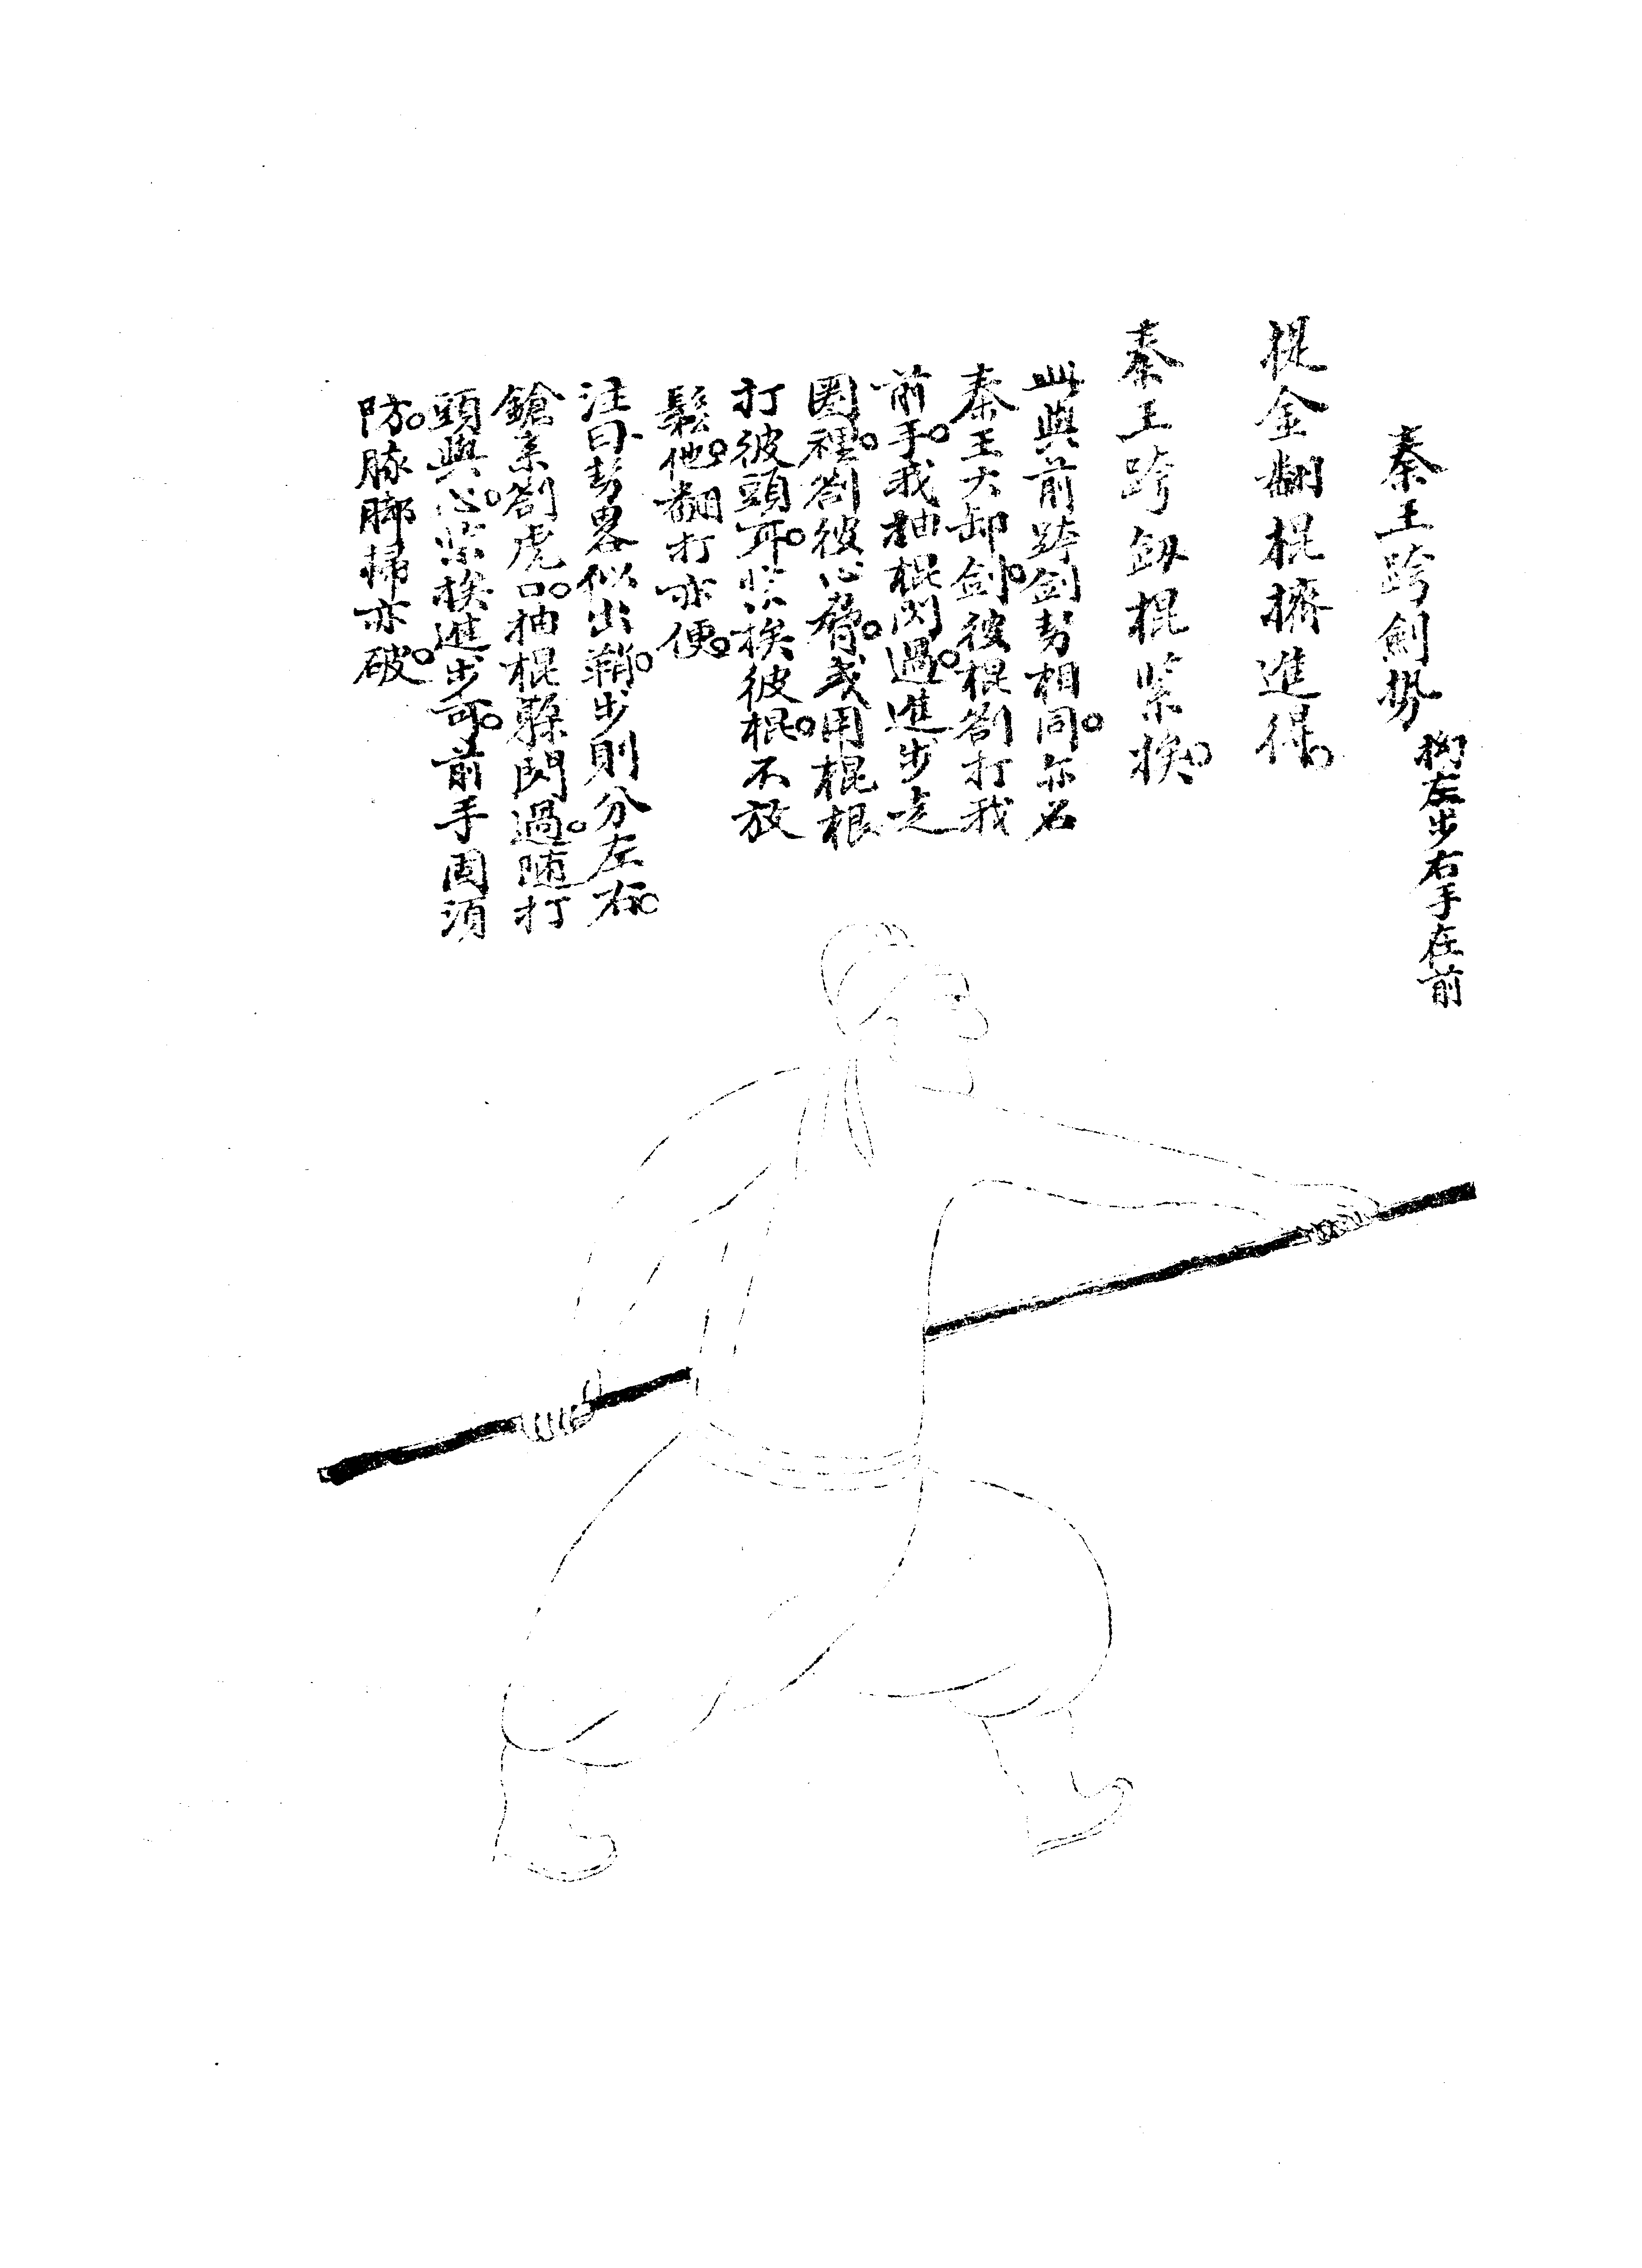 秦王跨劍勢 拗左步右手在前
提金翻棍擠進得。
秦王跨劔棍緊挨。
此與前跨劍势相同。亦名
秦王大卸劍。彼棍劄打我
前手。我抽棍閃過。進步走
圈裡。劄彼心脅。或用棍根
打彼頭耳。緊挨彼棍。不放
鬆他。翻打亦便。
注曰势畧似出鞘。步則分左右。
鎗来劄虎口。抽棍騲閃過。随打
頭與心。緊挨進步可。前手周須
防。膝脚掃亦破。